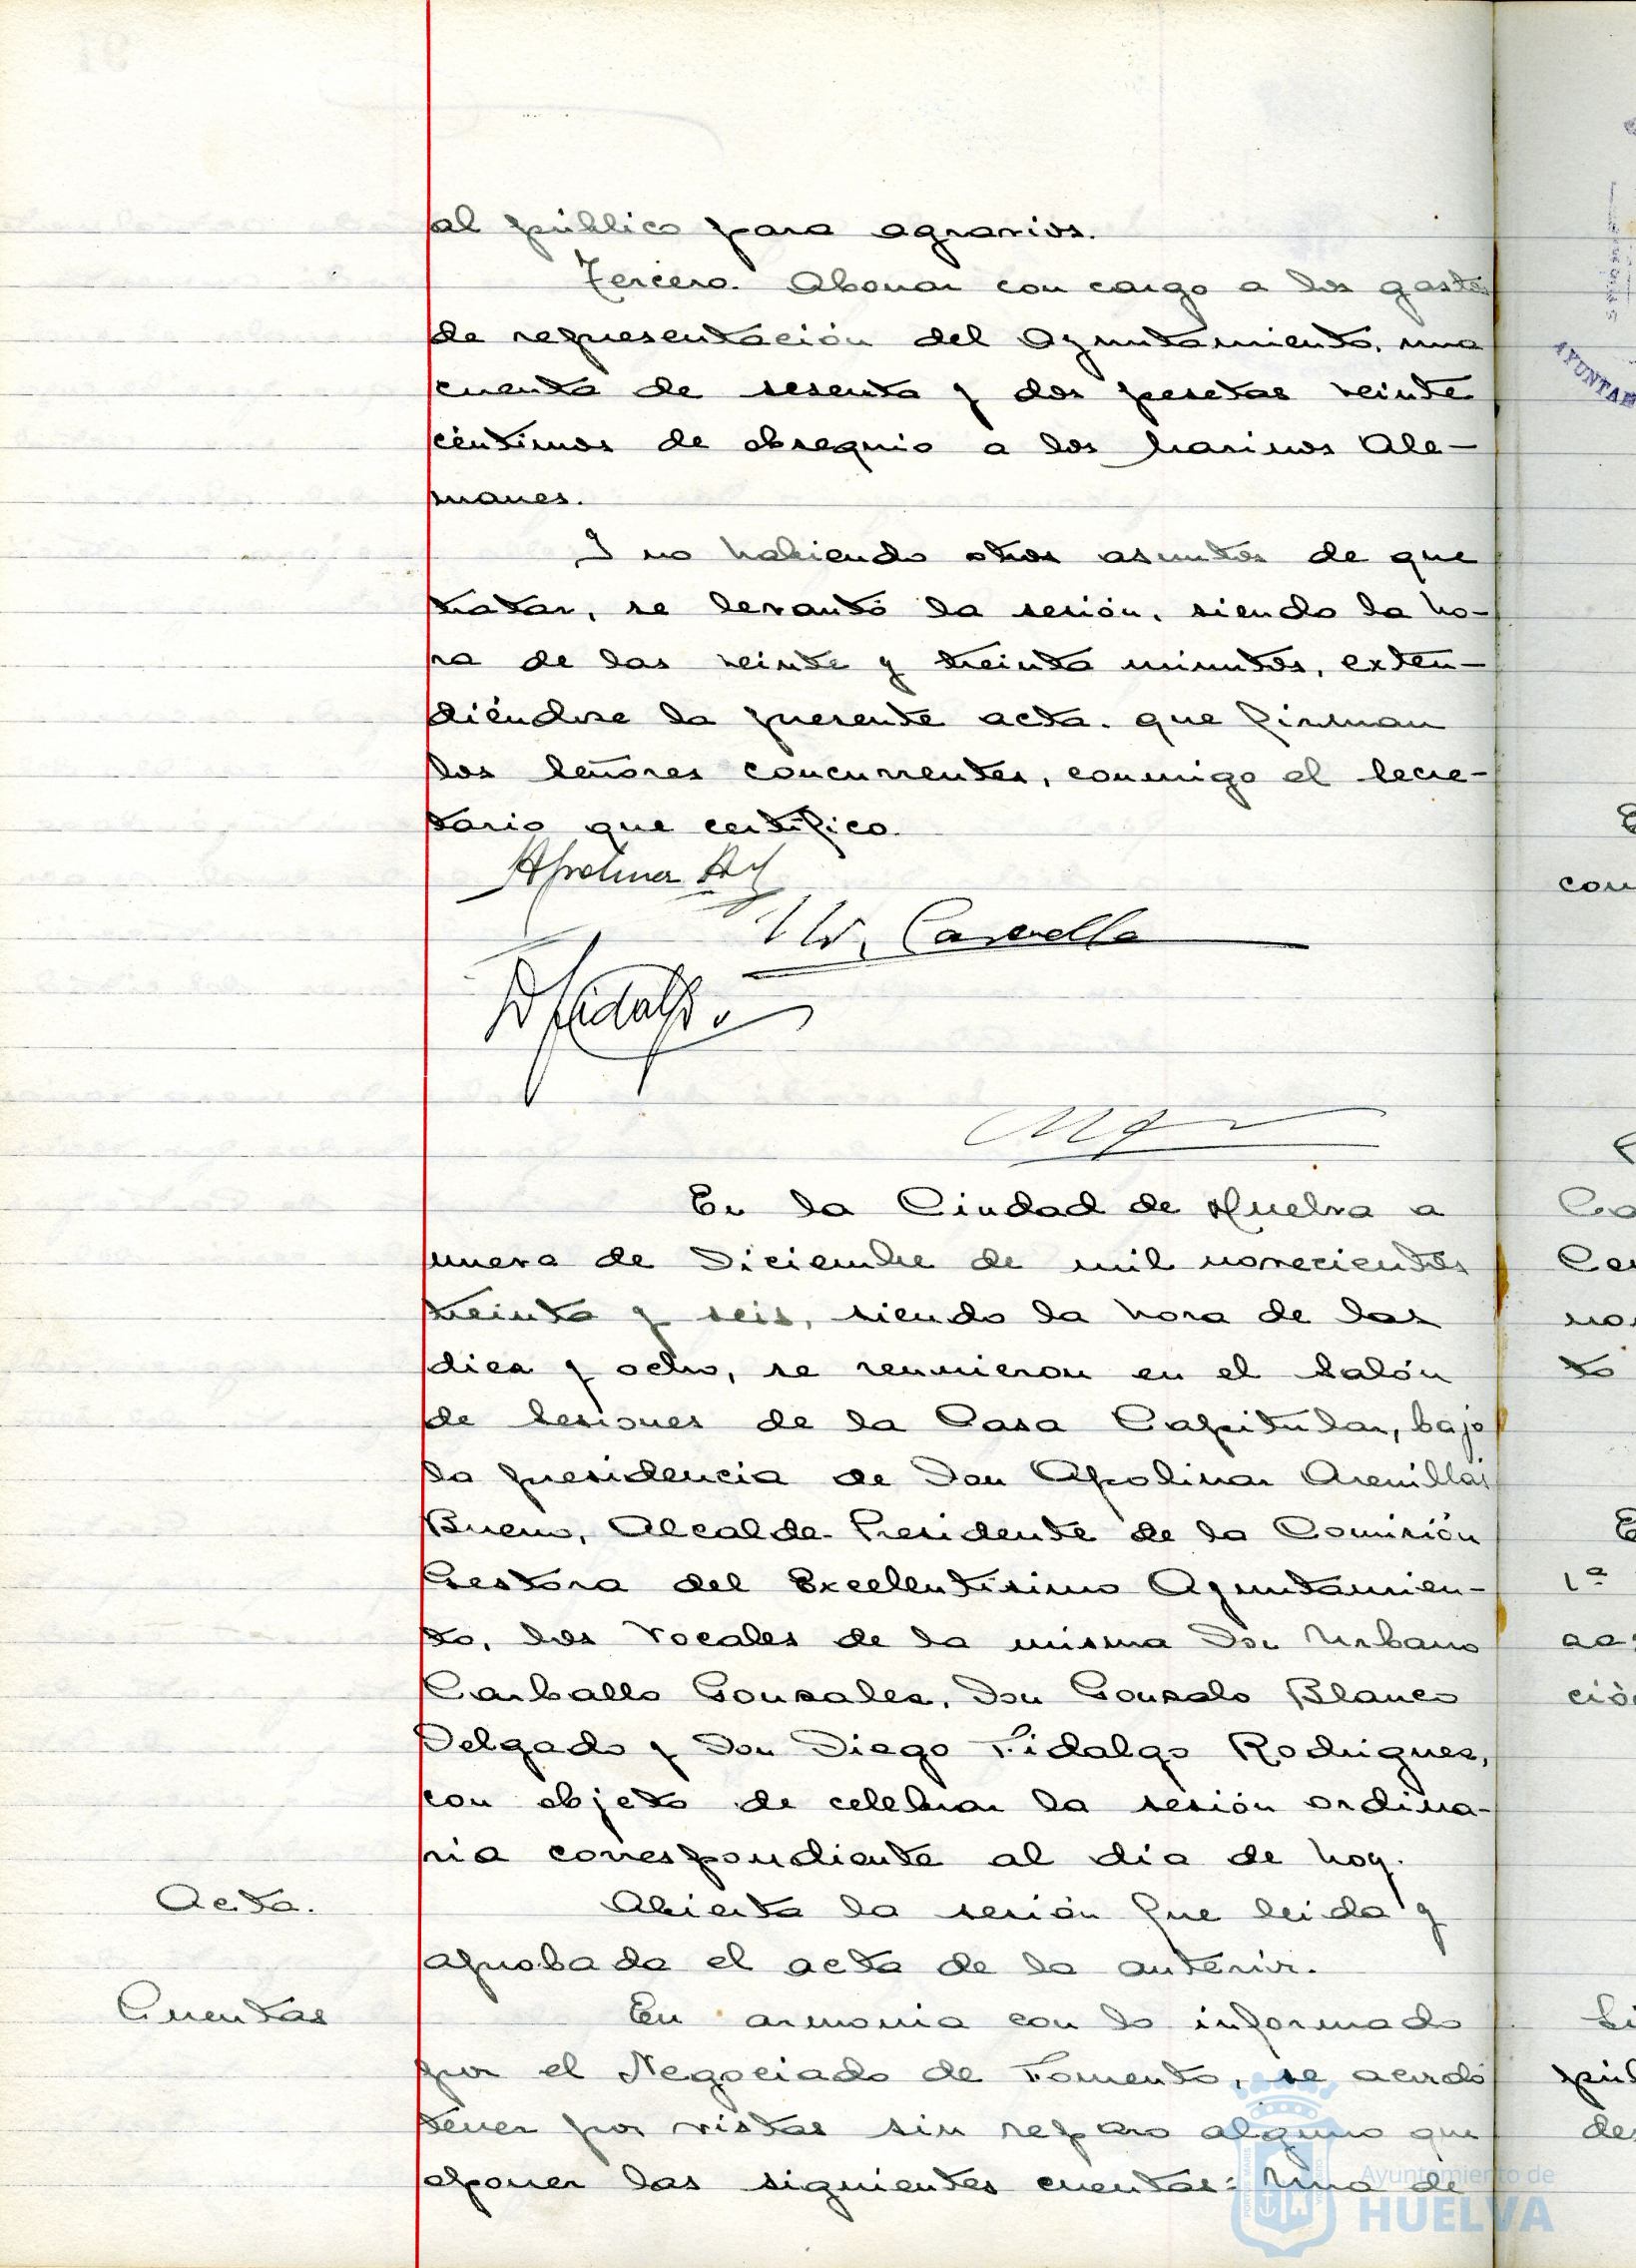 al público para agravios.
Tercero. Abonar con cargo a los gastos
de representación del Ayuntamiento, una
cuenta de sesenta y dos pesetas veinte
céntimos de obsequio a los Marinos Ale-
manes.
Y no habiendo otros asuntos de que
tratar, se levantó la sesión, siendo la ho-
ra de las veinte y treinta minutos, exten-
diéndose la presente acta. que firman
los Señores concurrentes, conmigo el Secre-
tario que certifico.
Apolinar
Carballo
D Fidalgo
En la Ciudad de Huelva a
nueve de Diciembre de mil novecientos
treinta y seis, siendo la hora de las
diez y ocho, se reunieron en el Salón
de Sesiones de la Casa Capitular, bajo
la presidencia de Don Apolinar Arenillas
Bueno, Alcalde-Presidente de la Comisión
Gestora del Excelentísimo Ayuntamien-
to, los Vocales de la misma Don Urbano
Carballo Gonzalez, Don Gonzalo Blanco
Delgado y Don Diego Fidalgo Rodriguez,
con objeto de celebrar la sesión ordina-
ria correspondiente al día de hoy.
Acta.
Abierta la sesión fue leida y
aprobada el acta de la anterior.
Cuentas
En armonia con lo informado
por el Negociado de Fomento, se acordó
tener por vistas sin reparo alguno que
oponer las siguientes cuentas: Una de
Ayuntamiento de
HUELVA